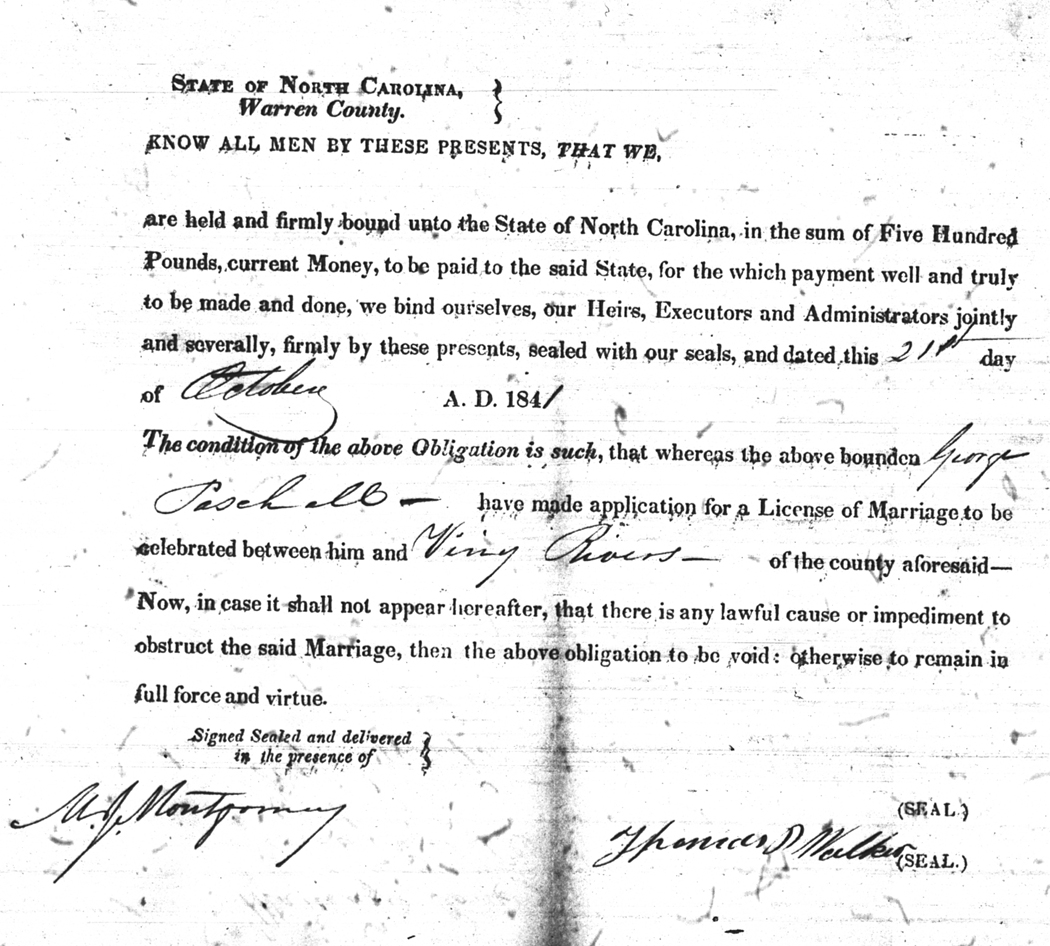 STATE OF NORTH CAROLINA,
Warren County.
KNOW ALL MEN BY THESE PRESENTS, THAT WE,
are held and firmly bound unto the State of North Carolina, in the sum of Five Hundred
Pounds, current Money, to be paid to the said State, for the which payment well and truly
to be made and done, we bind ourselves, our Heirs, Executors and Administrators jointly
and severally, firmly by these presents, sealed with our seals, and dated this 21st day
of October A. D. 1841
The condition of the above Obligation is such, that whereas the above bounden George
Paschall — have made application for a License of Marriage to be
celebrated between him and Viny Rivers — of the county aforesaid—
Now, in case it shall not appear hereafter, that there is any lawful cause or impediment to
obstruct the said Marriage, then the above obligation to be void: otherwise to remain in
full force and virtue.
Signed Sealed and delivered
in the presence of
M. J. Montgomery
(SEAL.)
Thomas P Walker (SEAL.)